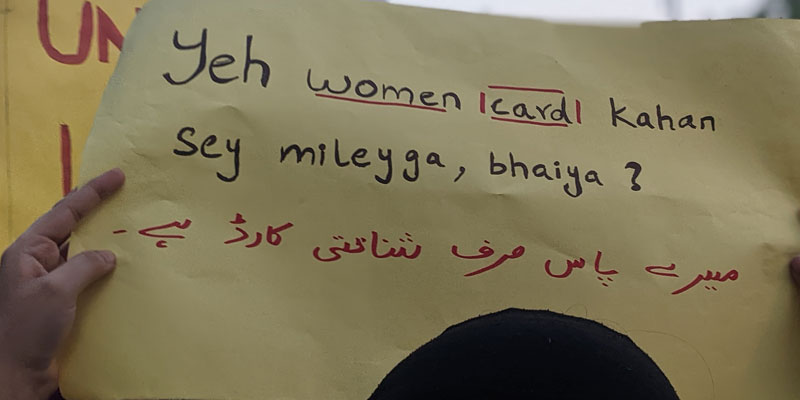 UN
Yeh women card kahan
sey mileyga, bhaiya ?
میرے پاس صرف شناختی کارڈ ہے۔